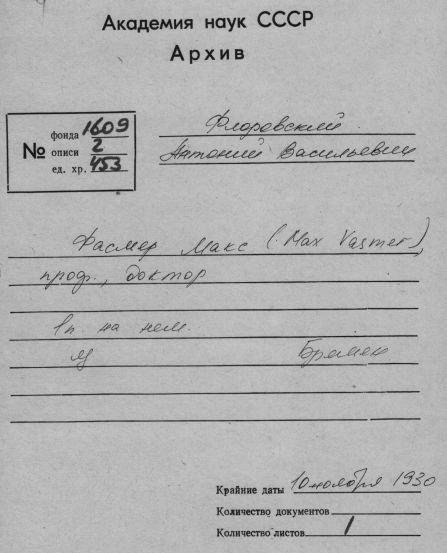 Академия наук СССР
Архив
№
фонда 1609
описи 2
ед. хр. 453
Флоровский
Антоний Васильевич
Фасмер Макс (Max Vasmer),
проф., доктор
1п. на нем.
яз Бремен
Крайние даты 10 ноября 1930
Количество документов
Количество листов 1